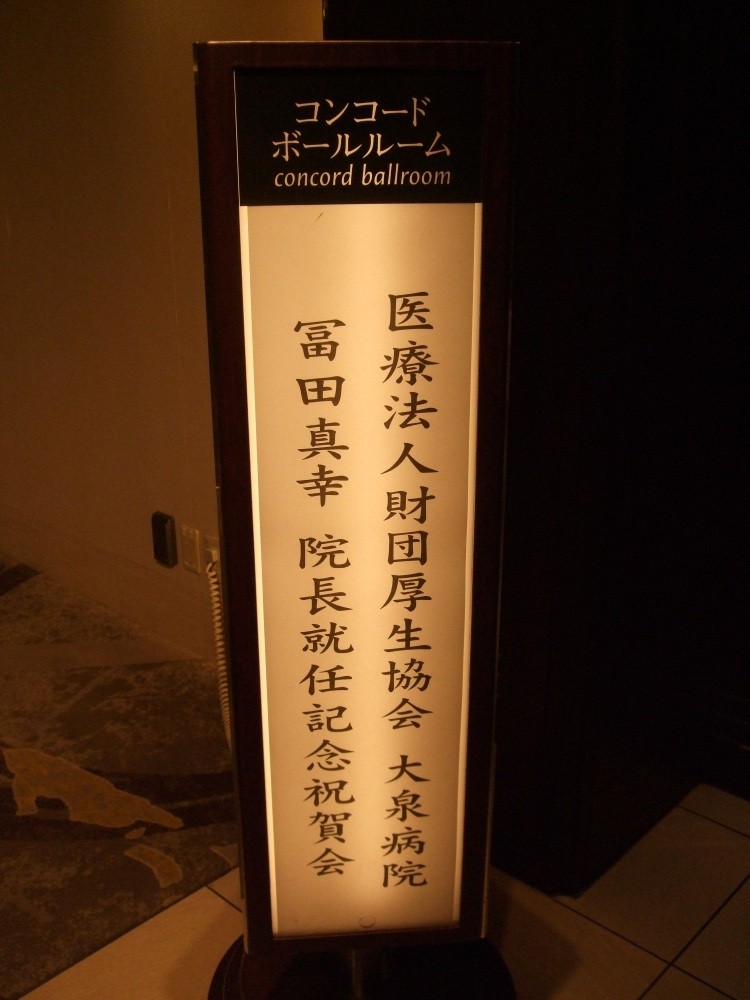 コンコード
ボールルーム
concord ballroom
医療法人財団厚生協会 大泉病院
冨田真幸 院長就任記念祝賀会